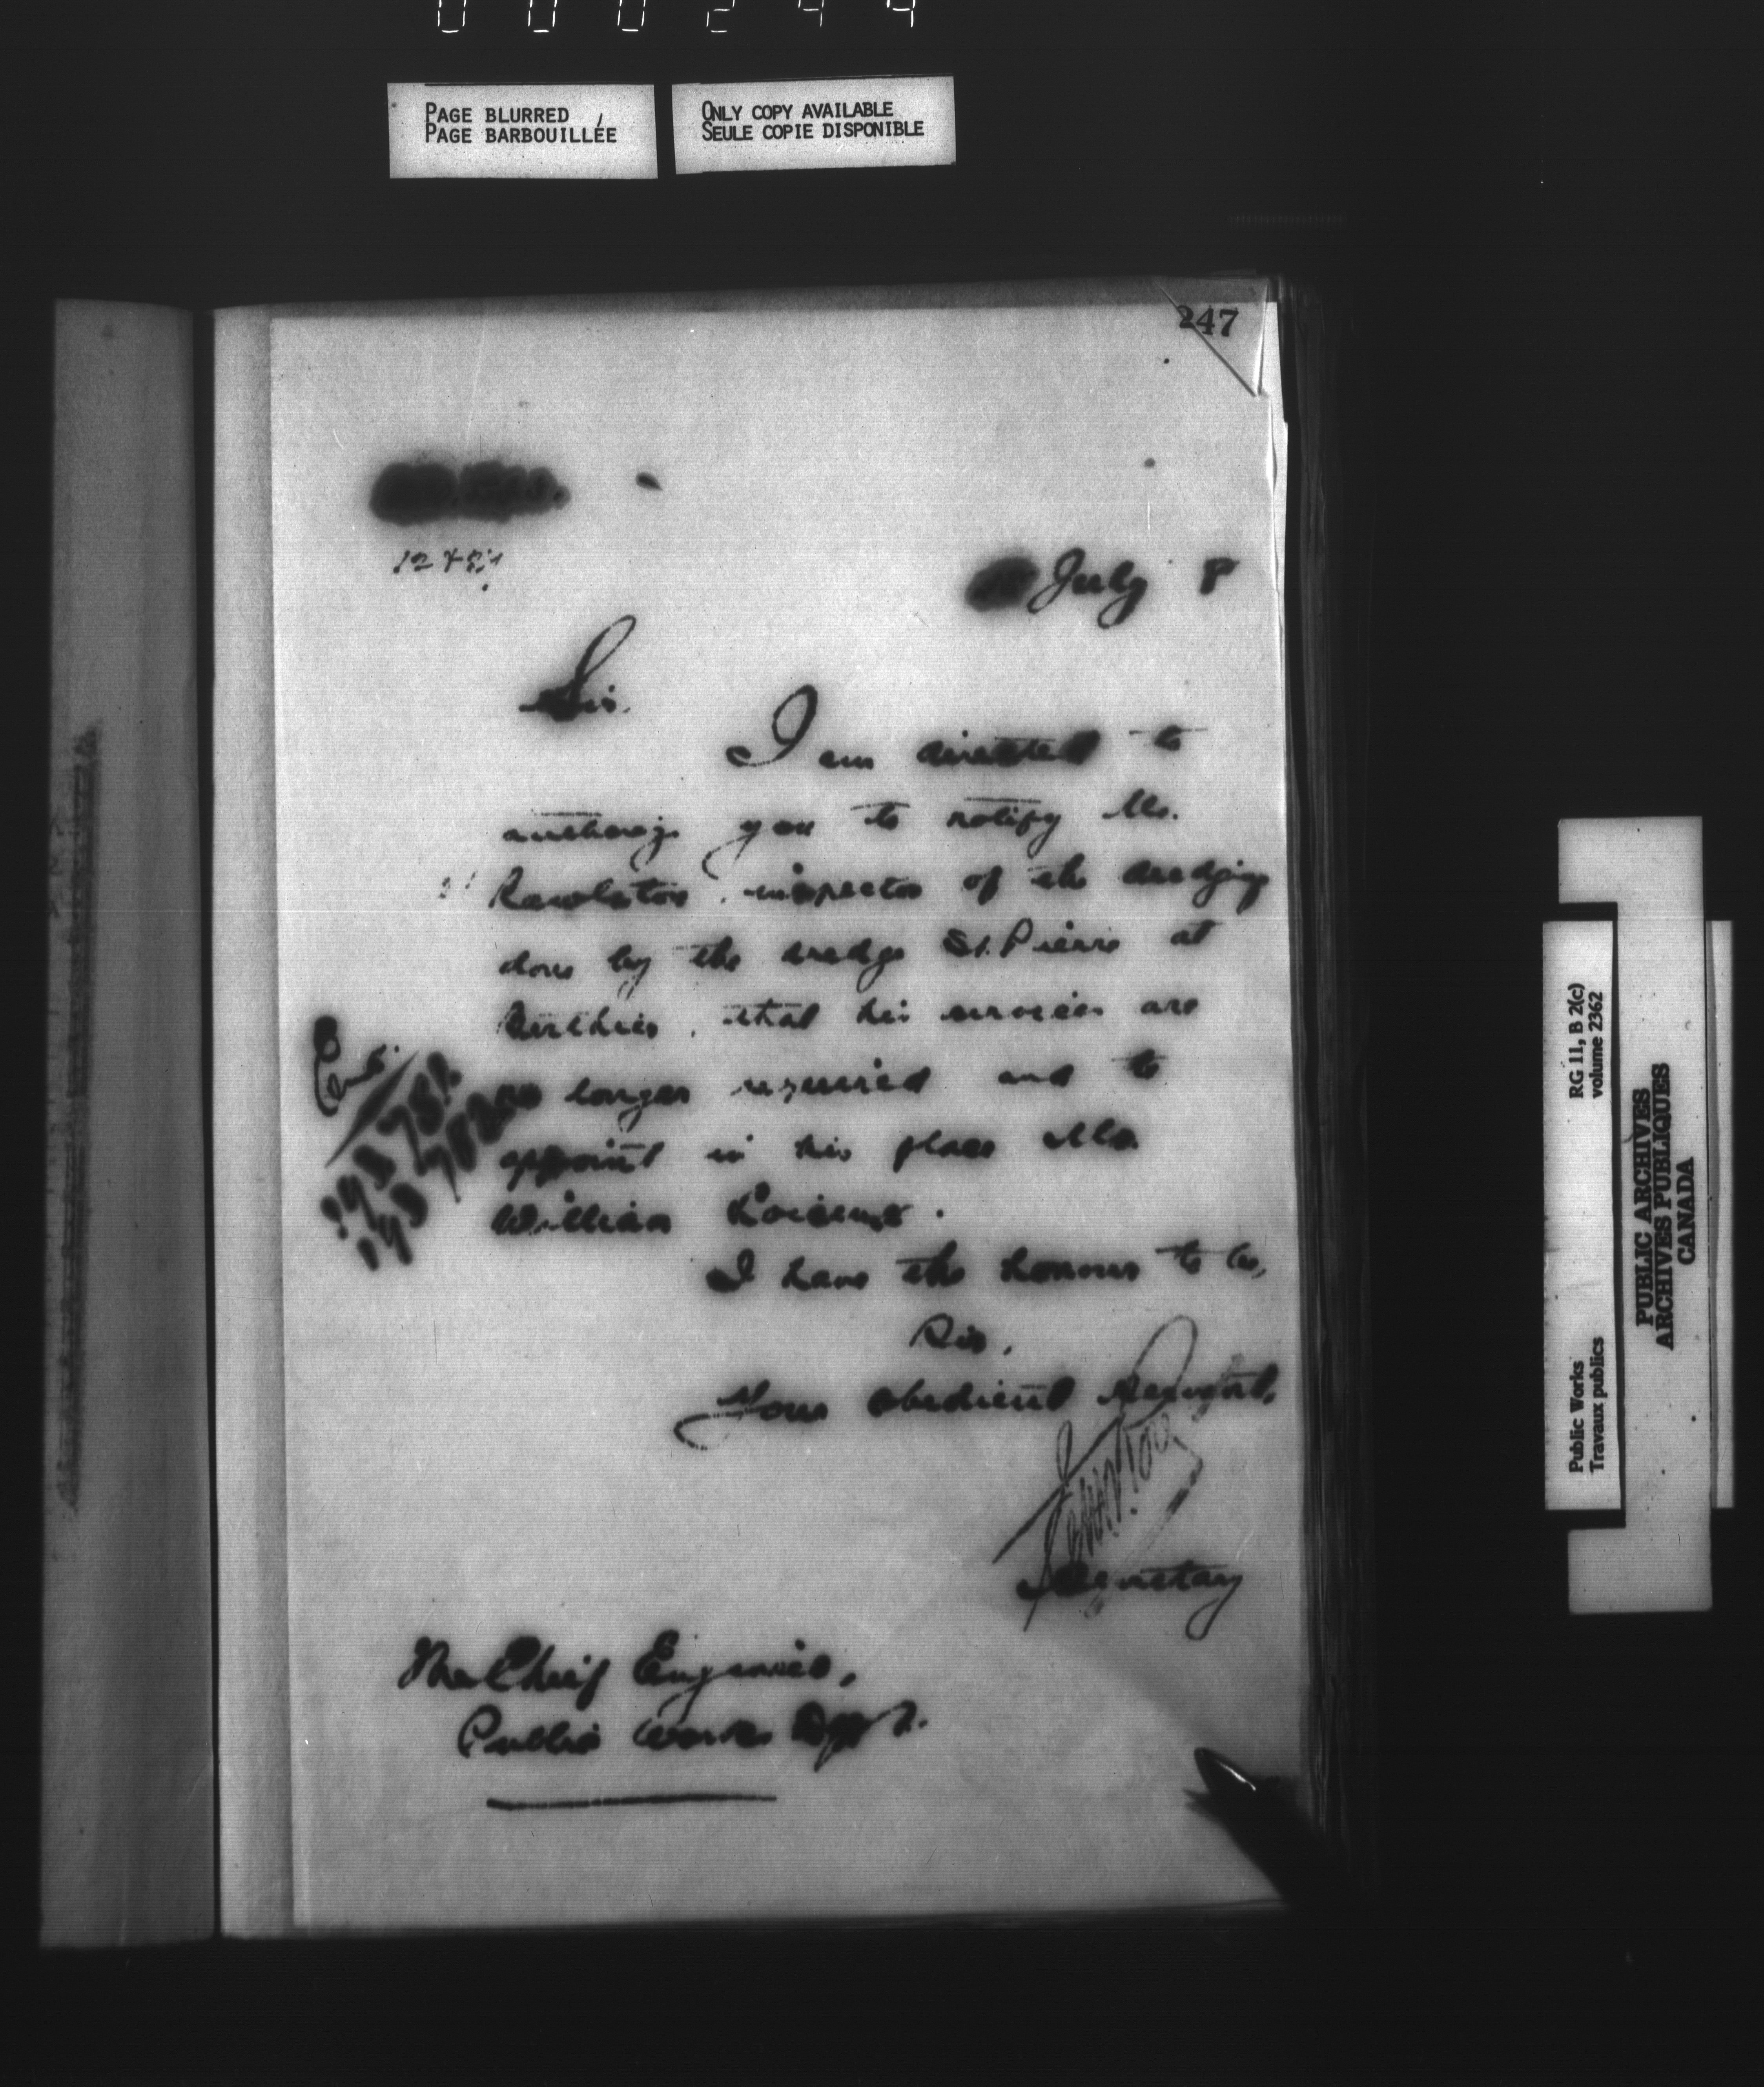 PAGE BLURRED
PAGE BARBOUILLÉE
ONLY COPY AVAILABLE
SEULE COPIE DISPONIBLE
247
July 8
Sir.
I am directed to
authorize you to notify Mr.
inspector of the dredging
done by the dredge St. Pierre at
Berthier, that his services are
no longer required and to
appoint in his place Mr.
William
I have the honour to be,
Sir,
Your obedient servant,
Secretary
The Chief Engineer,
Public Works Dept.
RG 11, B 2(c)
volume 2362
Public Works
Travaux publics
PUBLIC ARCHIVES
ARCHIVES PUBLIQUES
CANADA